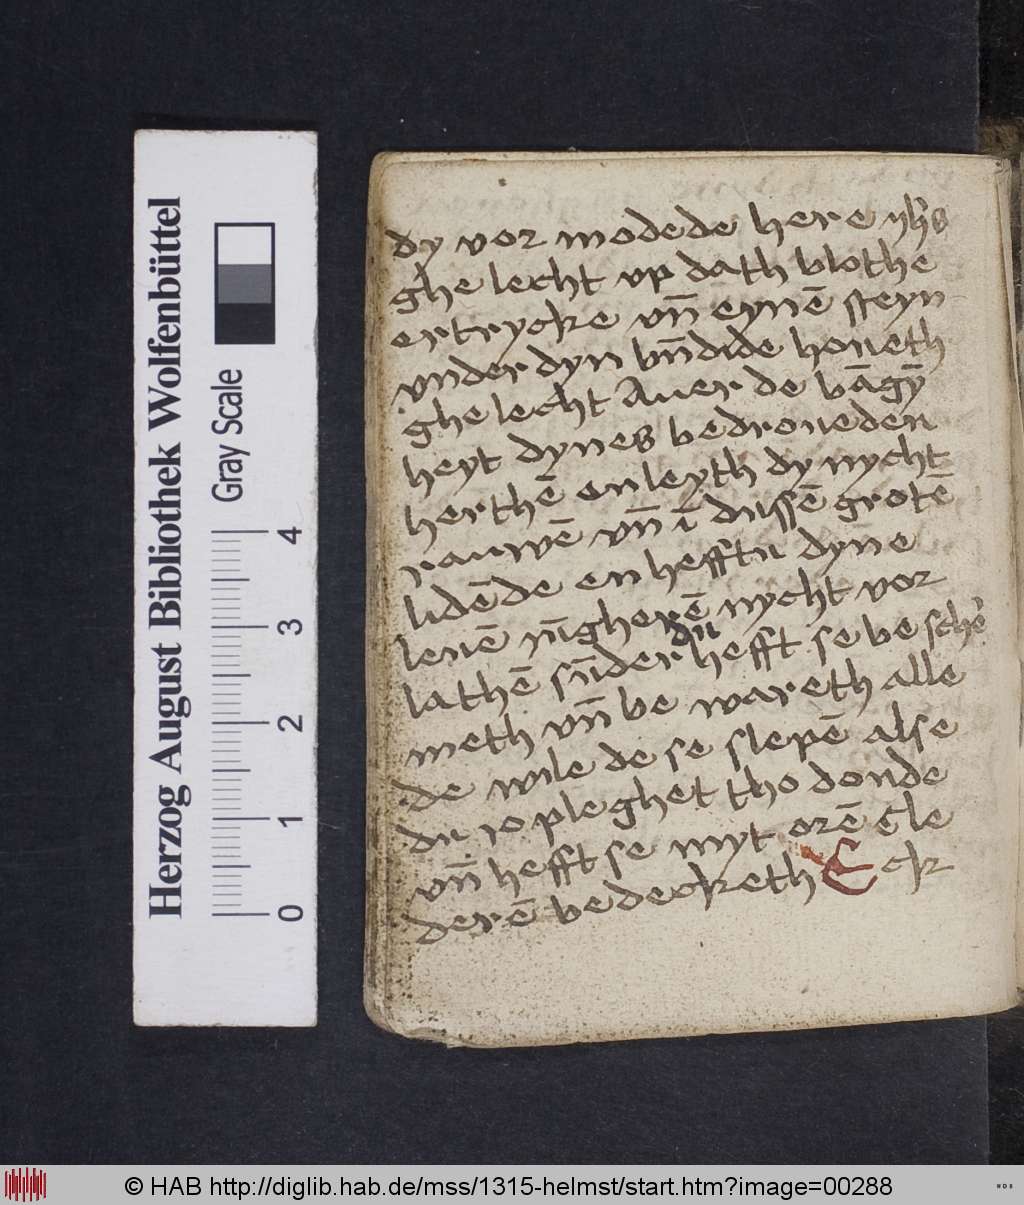 dy vor modede here yh̄s
ghe lecht vp dath blothe
ertrycke vn̄ eynē steyn
vnder dyn vn̄dide houeth
ghe lecht Auer de bāgȳ
heyt dynes bedroueden
herthē en leyth dy nycht
rauwē vn̄ ī dussē grotē
lidēde en hefftu dyne
leuē iūgherē nycht vor
lathē sūder du hefft se be schē
meth vn̄ be wareth alle
de wile de se slepē alse
du io pleghet tho donde
vn̄ hefft se myt orē cle
derē bedecketh Eck
Herzog August Bibliothek Wolfenbüttel
Gray Scale
0 1 2 3 4
© HAB http://diglib.hab.de/mss/1315-helmst/start.htm?image=00288